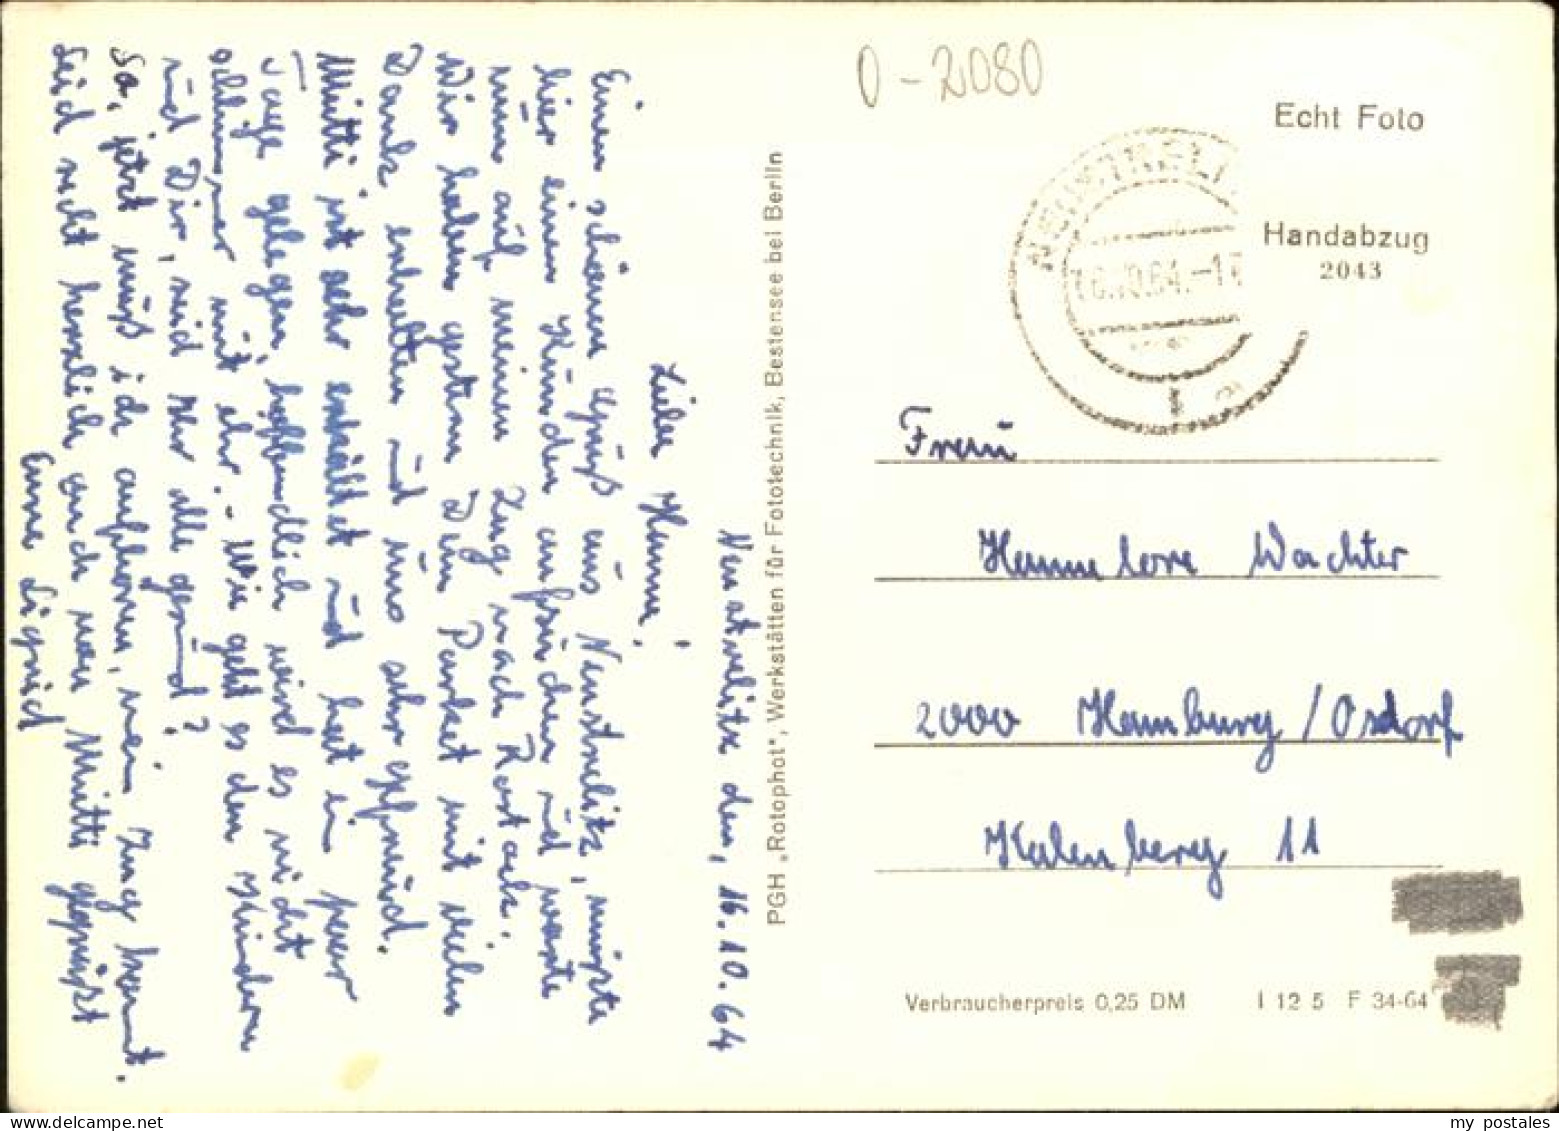 Neustrelitz den, 16.10.64
Liebe Hanne!
Einen schönen Gruß aus Neustrelitz, mußte
hier einen Kunden aufsuchen und warte
nun auf meinen Zug nach Rostock.
Wir haben gestern Dein Packet mit vielen
Dank erhalten und uns sehr gefreud.
Mutti ist sehr erkältet und hat ein paar
Tage gelegen, hoffendlich wird es nicht
schlimmer mit ihr. - Wie geht es den Kindern
und Dir, seid Ihr alle gesund?
So, jetzt muß ich aufhören, mein Zug kommt.
Seid recht herzlich auch von Mutti gegrüßt
Eure Sigrid
PGH „Rotophot", Werkstätten für Fototechnik, Bestensee bei Berlin
0-2080
Echt Foto
Handabzug
2043
NEUSTRELIT
16.10.64.-1
Frau
Hannelore Wachter
2000 Hamburg/Osdorf
Kalenberg 11
Verbraucherpreis 0,25 DM I 12 5 F 34-64
my postales